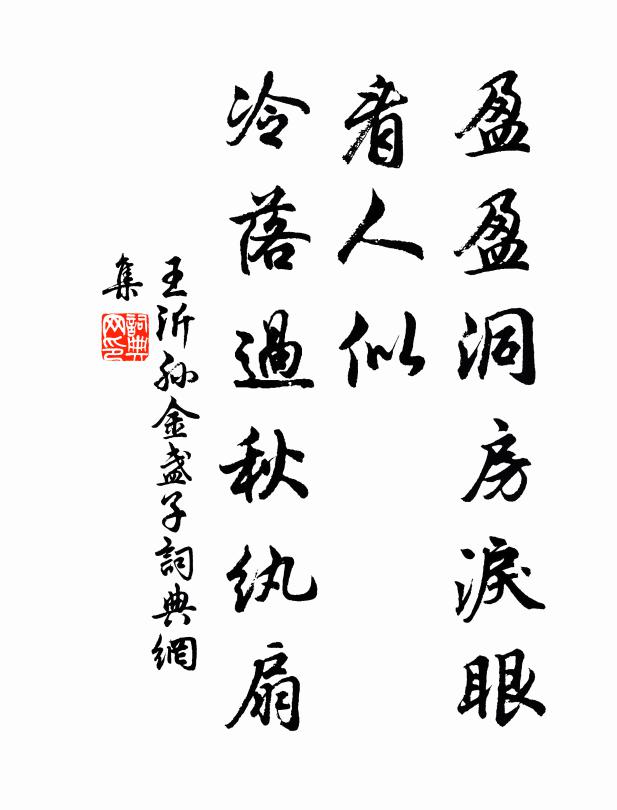 盈盈洞房淚眼
看人似
冷落過秋紈扇
王沂孫金盞子詞典網
集
詞典網印